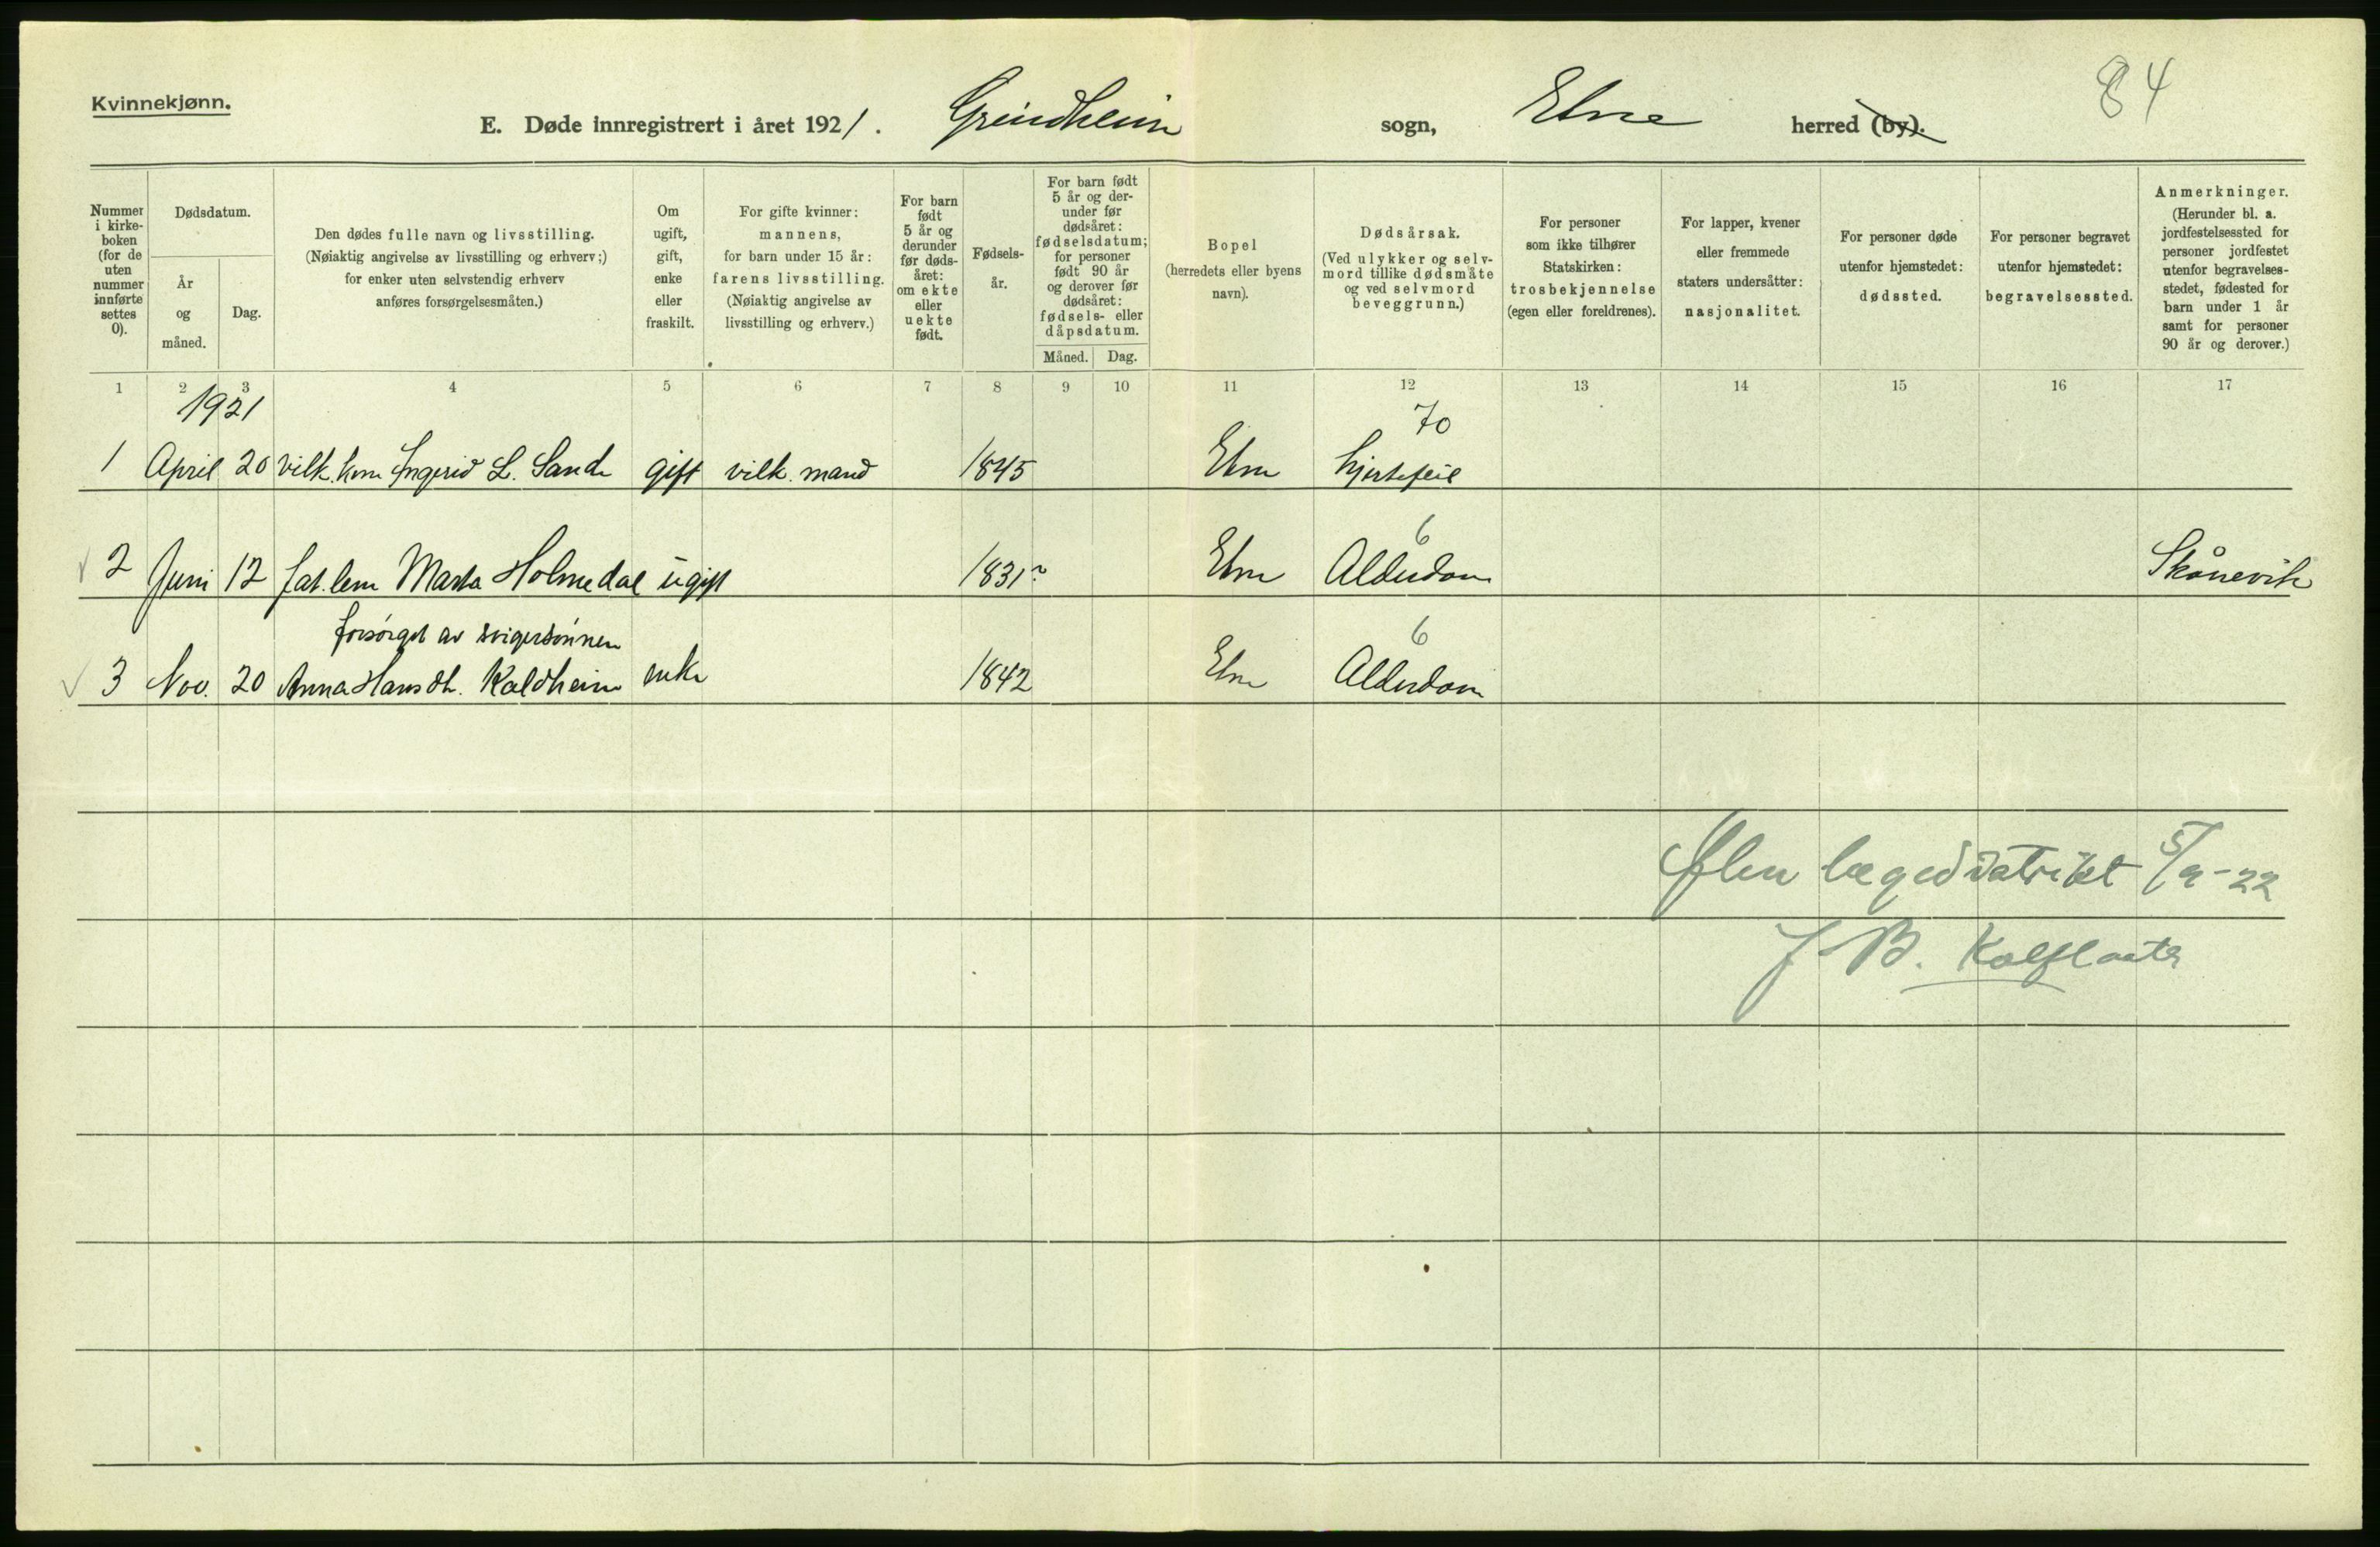 Kvinnekjønn.
84
E. Døde innregistrert i året 1921. Grindheim sogn, Etne herred (by).
Nummer i kirkeboken (for de uten nummer innførte settes 0).
Dødsdatum.
År og måned.
Dag.
Den dødes fulle navn og livsstilling.
(Nøiaktig angivelse av livsstilling og erhverv;)
for enker uten selvstendig erhverv
anføres forsørgelsesmåten.)
Om ugift, gift, enke eller fraskilt.
For gifte kvinner: mannens, for barn under 15 år: farens livsstilling. (Nøiaktig angivelse av livsstilling og erhverv.)
For barn født 5 år og derunder før dødsåret: om ekte eller uekte født.
Fødselsår.
For barn født 5 år og derunder før dødsåret: fødselsdatum; for personer født 90 år og derover før dødsåret: fødsels- eller dåpsdatum.
Måned. Dag.
Bopel (herredets eller byens navn).
Dødsårsak. (Ved ulykker og selvmord tillike dødsmåte og ved selvmord beveggrunn.)
For personer som ikke tilhører Statskirken: trosbekjennelse (egen eller foreldrenes).
For lapper, kvener eller fremmede staters undersåtter: nasjonalitet.
For personer døde utenfor hjemstedet: dødssted.
For personer begravet utenfor hjemstedet: begravelsessted.
Anmerkninger. (Herunder bl. a. jordfestelsessted for personer jordfestet utenfor begravelsesstedet, fødested for barn under 1 år samt for personer 90 år og derover.)
1 2 3 4 5 6 7 8 9 10 11 12 13 14 15 16 17
1921
70
1 April 20 vilk. kone Ingerid L. Sande gift vilk. mand 1845 Etne hjertefeil
6
2 Juni 12 fat. lem Marta Holmedal ugift 1831? Etne Alderdom Skånevik
forsörget av svigersönnen
6
3 Nov. 20 Anna Hansdtr. Kaldheim enke 1842 Etne Alderdom
Ølen lægedistrikt 5/9-22
J B. Kalflaatr